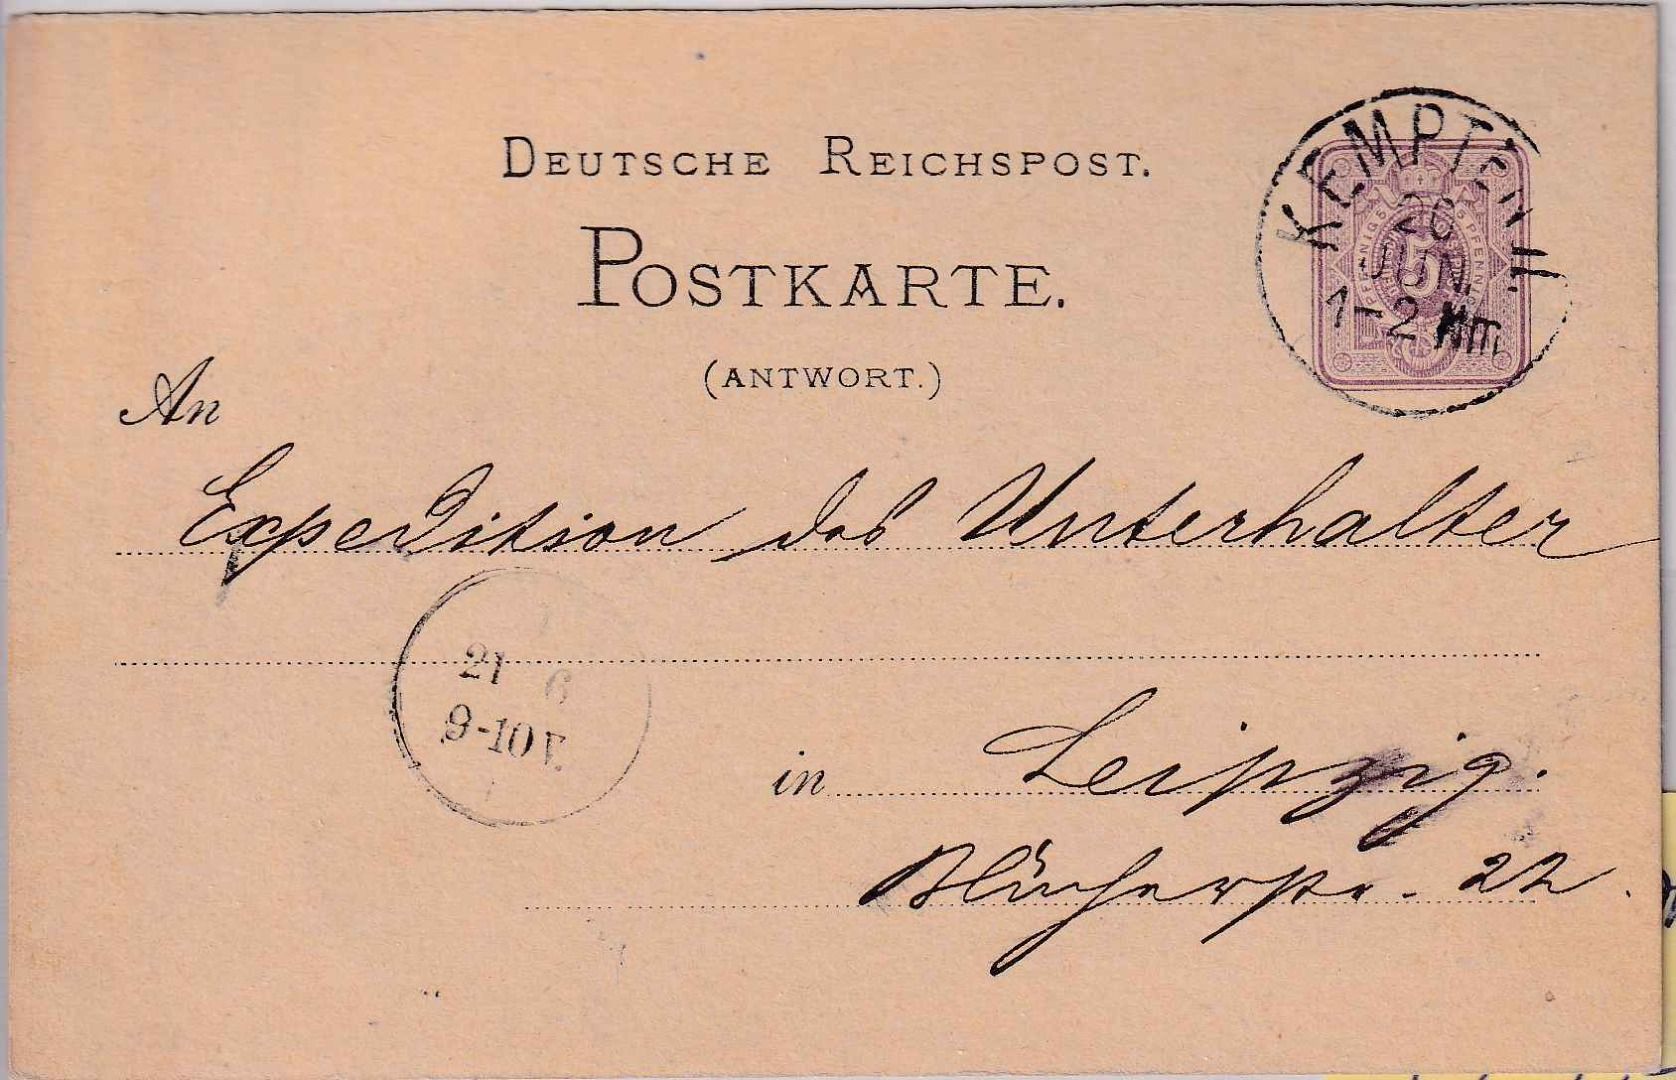 DEUTSCHE REICHSPOST.
POSTKARTE.
(ANTWORT.)
KEMPTEN II.
20
JUN.
1-2 Nm.
5
PFENNIG 5 5 PFENNIG
An
Expedition des Unterhalter
21 6
9-10 V.
in Leipzig.
Blücherstr. 22.